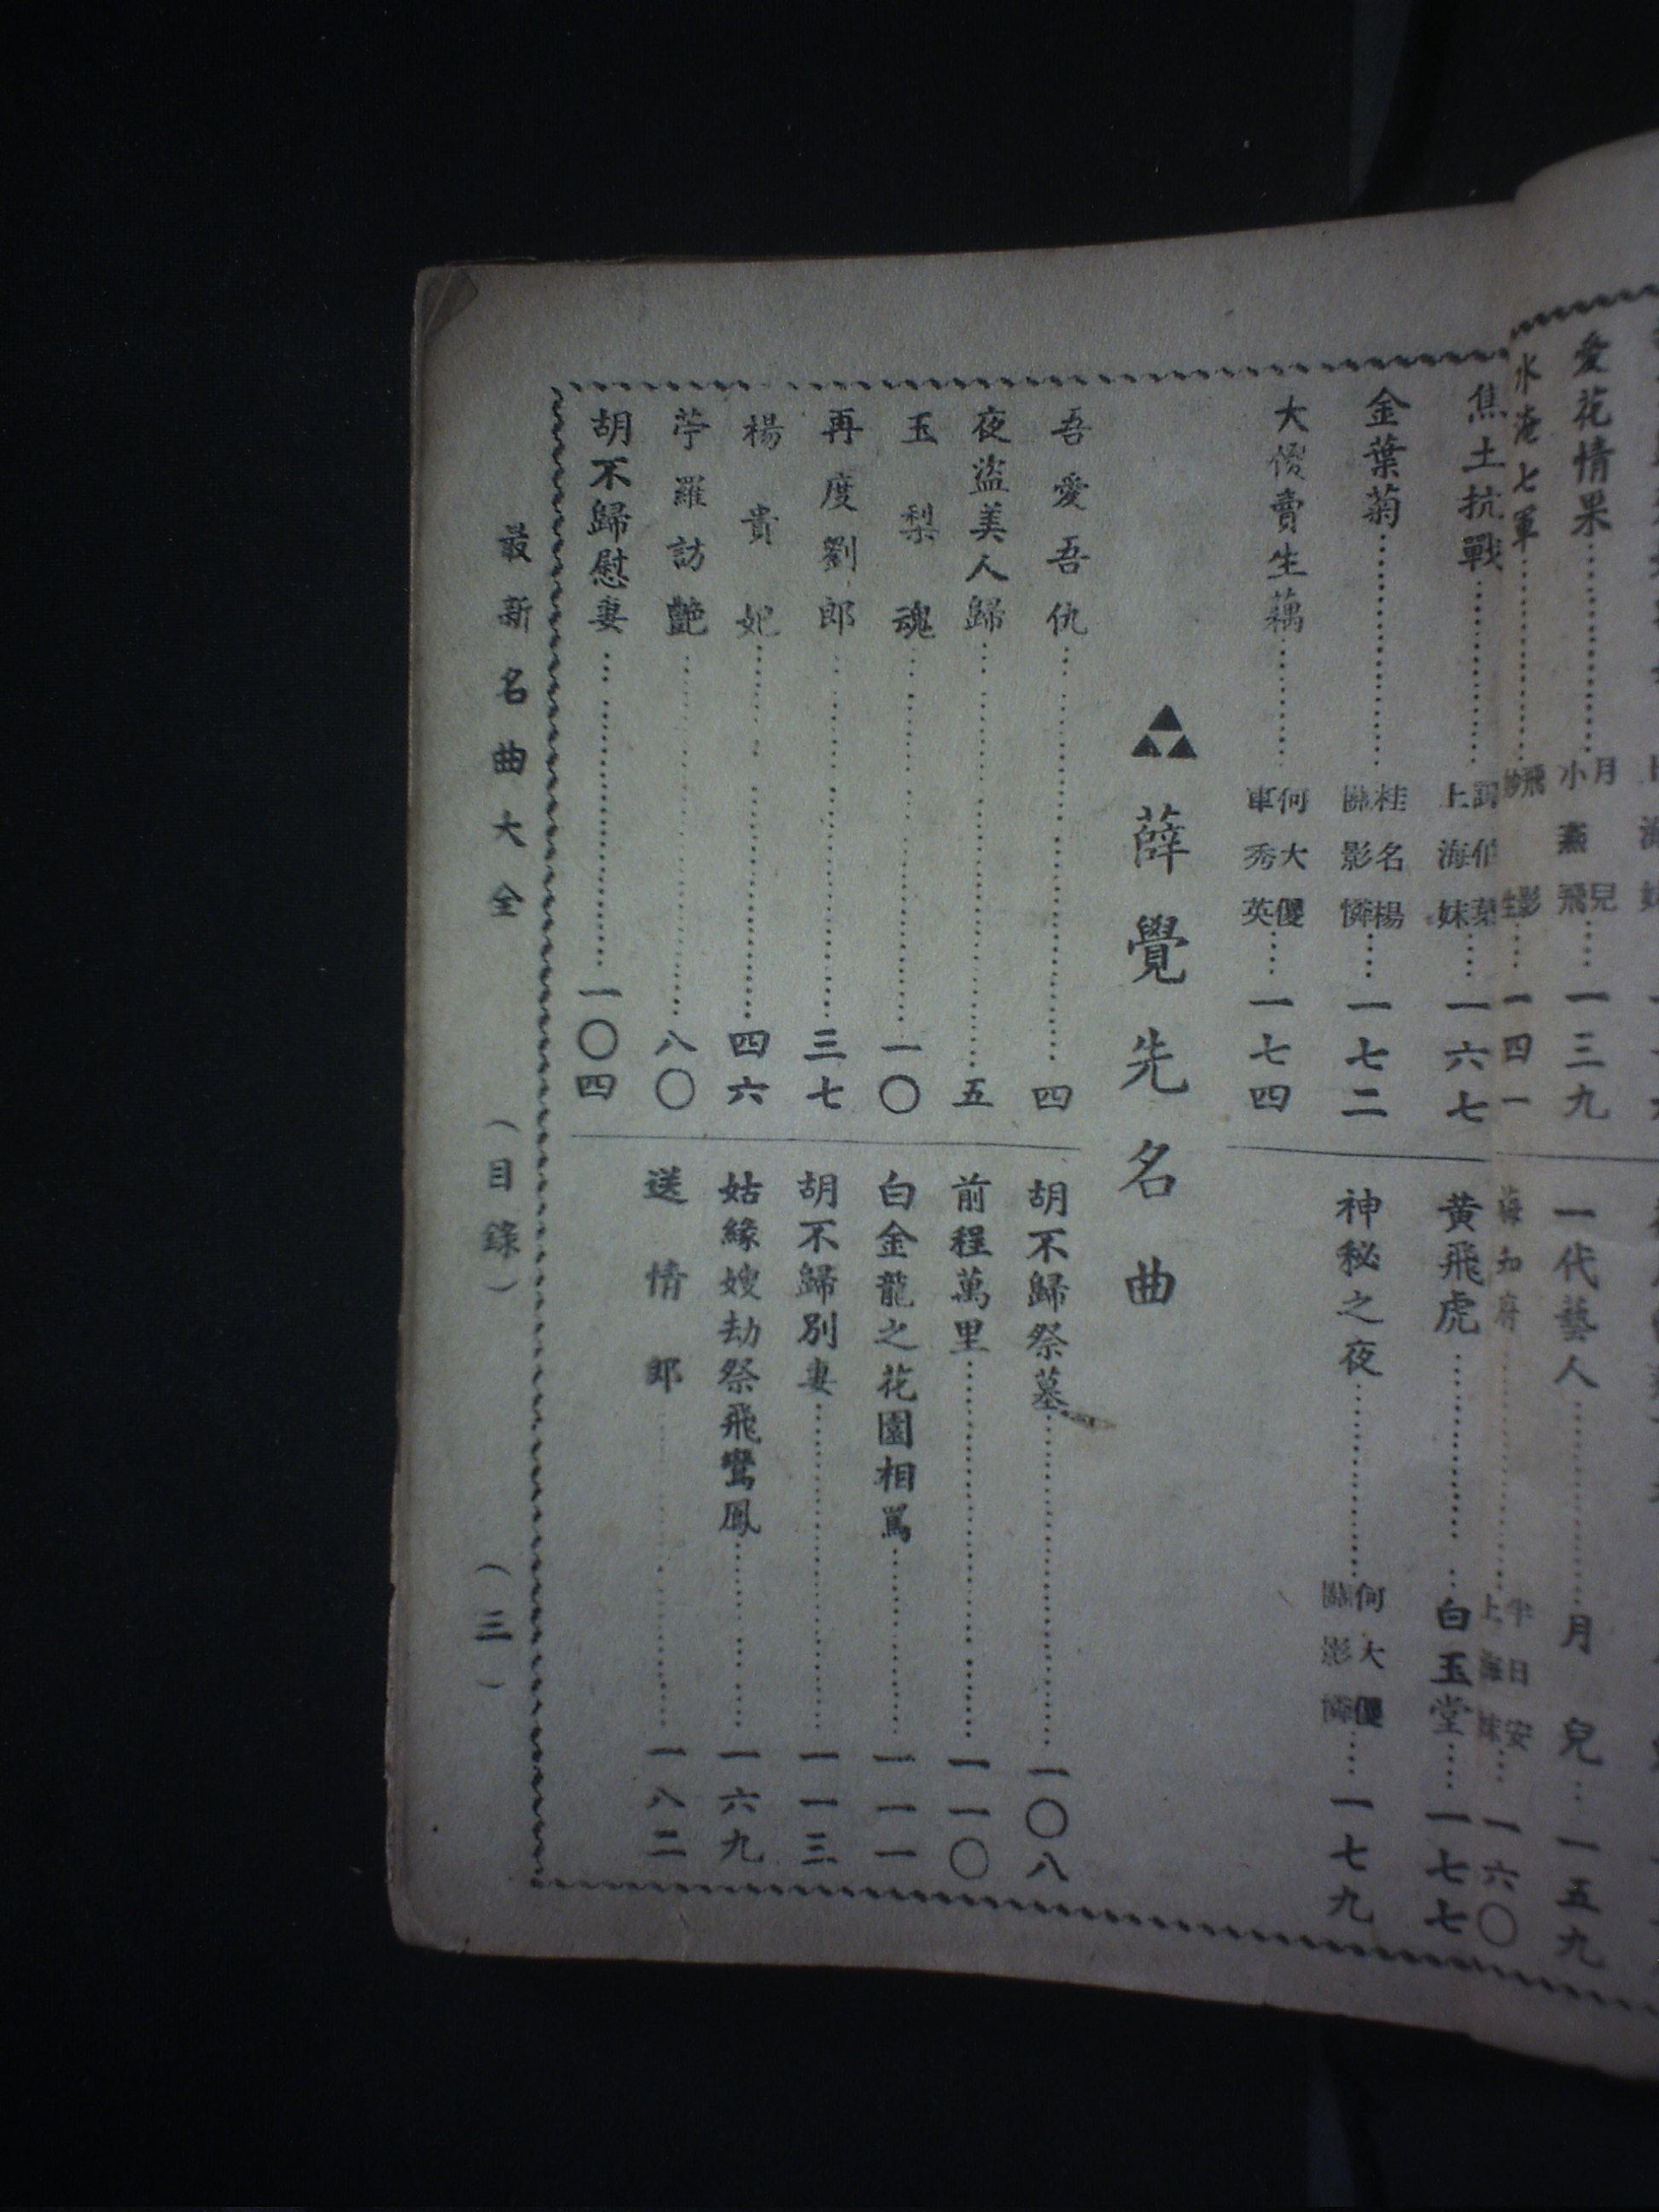 愛花情果⋯⋯月兒 小燕飛⋯⋯一三九
一代藝人⋯⋯月兒⋯⋯一五九
水淹七軍⋯⋯一四一
海知府⋯⋯半日安 上海妹⋯⋯一六〇
焦土抗戰⋯⋯上海妹⋯⋯一六七
黄飛虎⋯⋯白玉堂⋯⋯一七七
金葉菊⋯⋯桂名楊 區影憐⋯⋯一七二
神秘之夜⋯⋯何大儍 區影憐⋯⋯一七九
大儍賣生藕⋯⋯何大儍 車秀英⋯⋯一七四
薛覺先名曲
吾愛吾仇⋯⋯四
夜盜美人歸⋯⋯五
玉梨魂⋯⋯一〇
再度劉郎⋯⋯三七
楊貴妃⋯⋯四六
苧羅訪艷⋯⋯八〇
胡不歸慰妻⋯⋯一〇四
胡不歸祭墓⋯⋯一〇八
前程萬里⋯⋯一一〇
白金龍之花園相罵⋯⋯一一一
胡不歸別妻⋯⋯一一三
姑緣嫂劫祭飛鸞鳳⋯⋯一六九
送情郎⋯⋯一八二
最新名曲大全（目錄）（三）